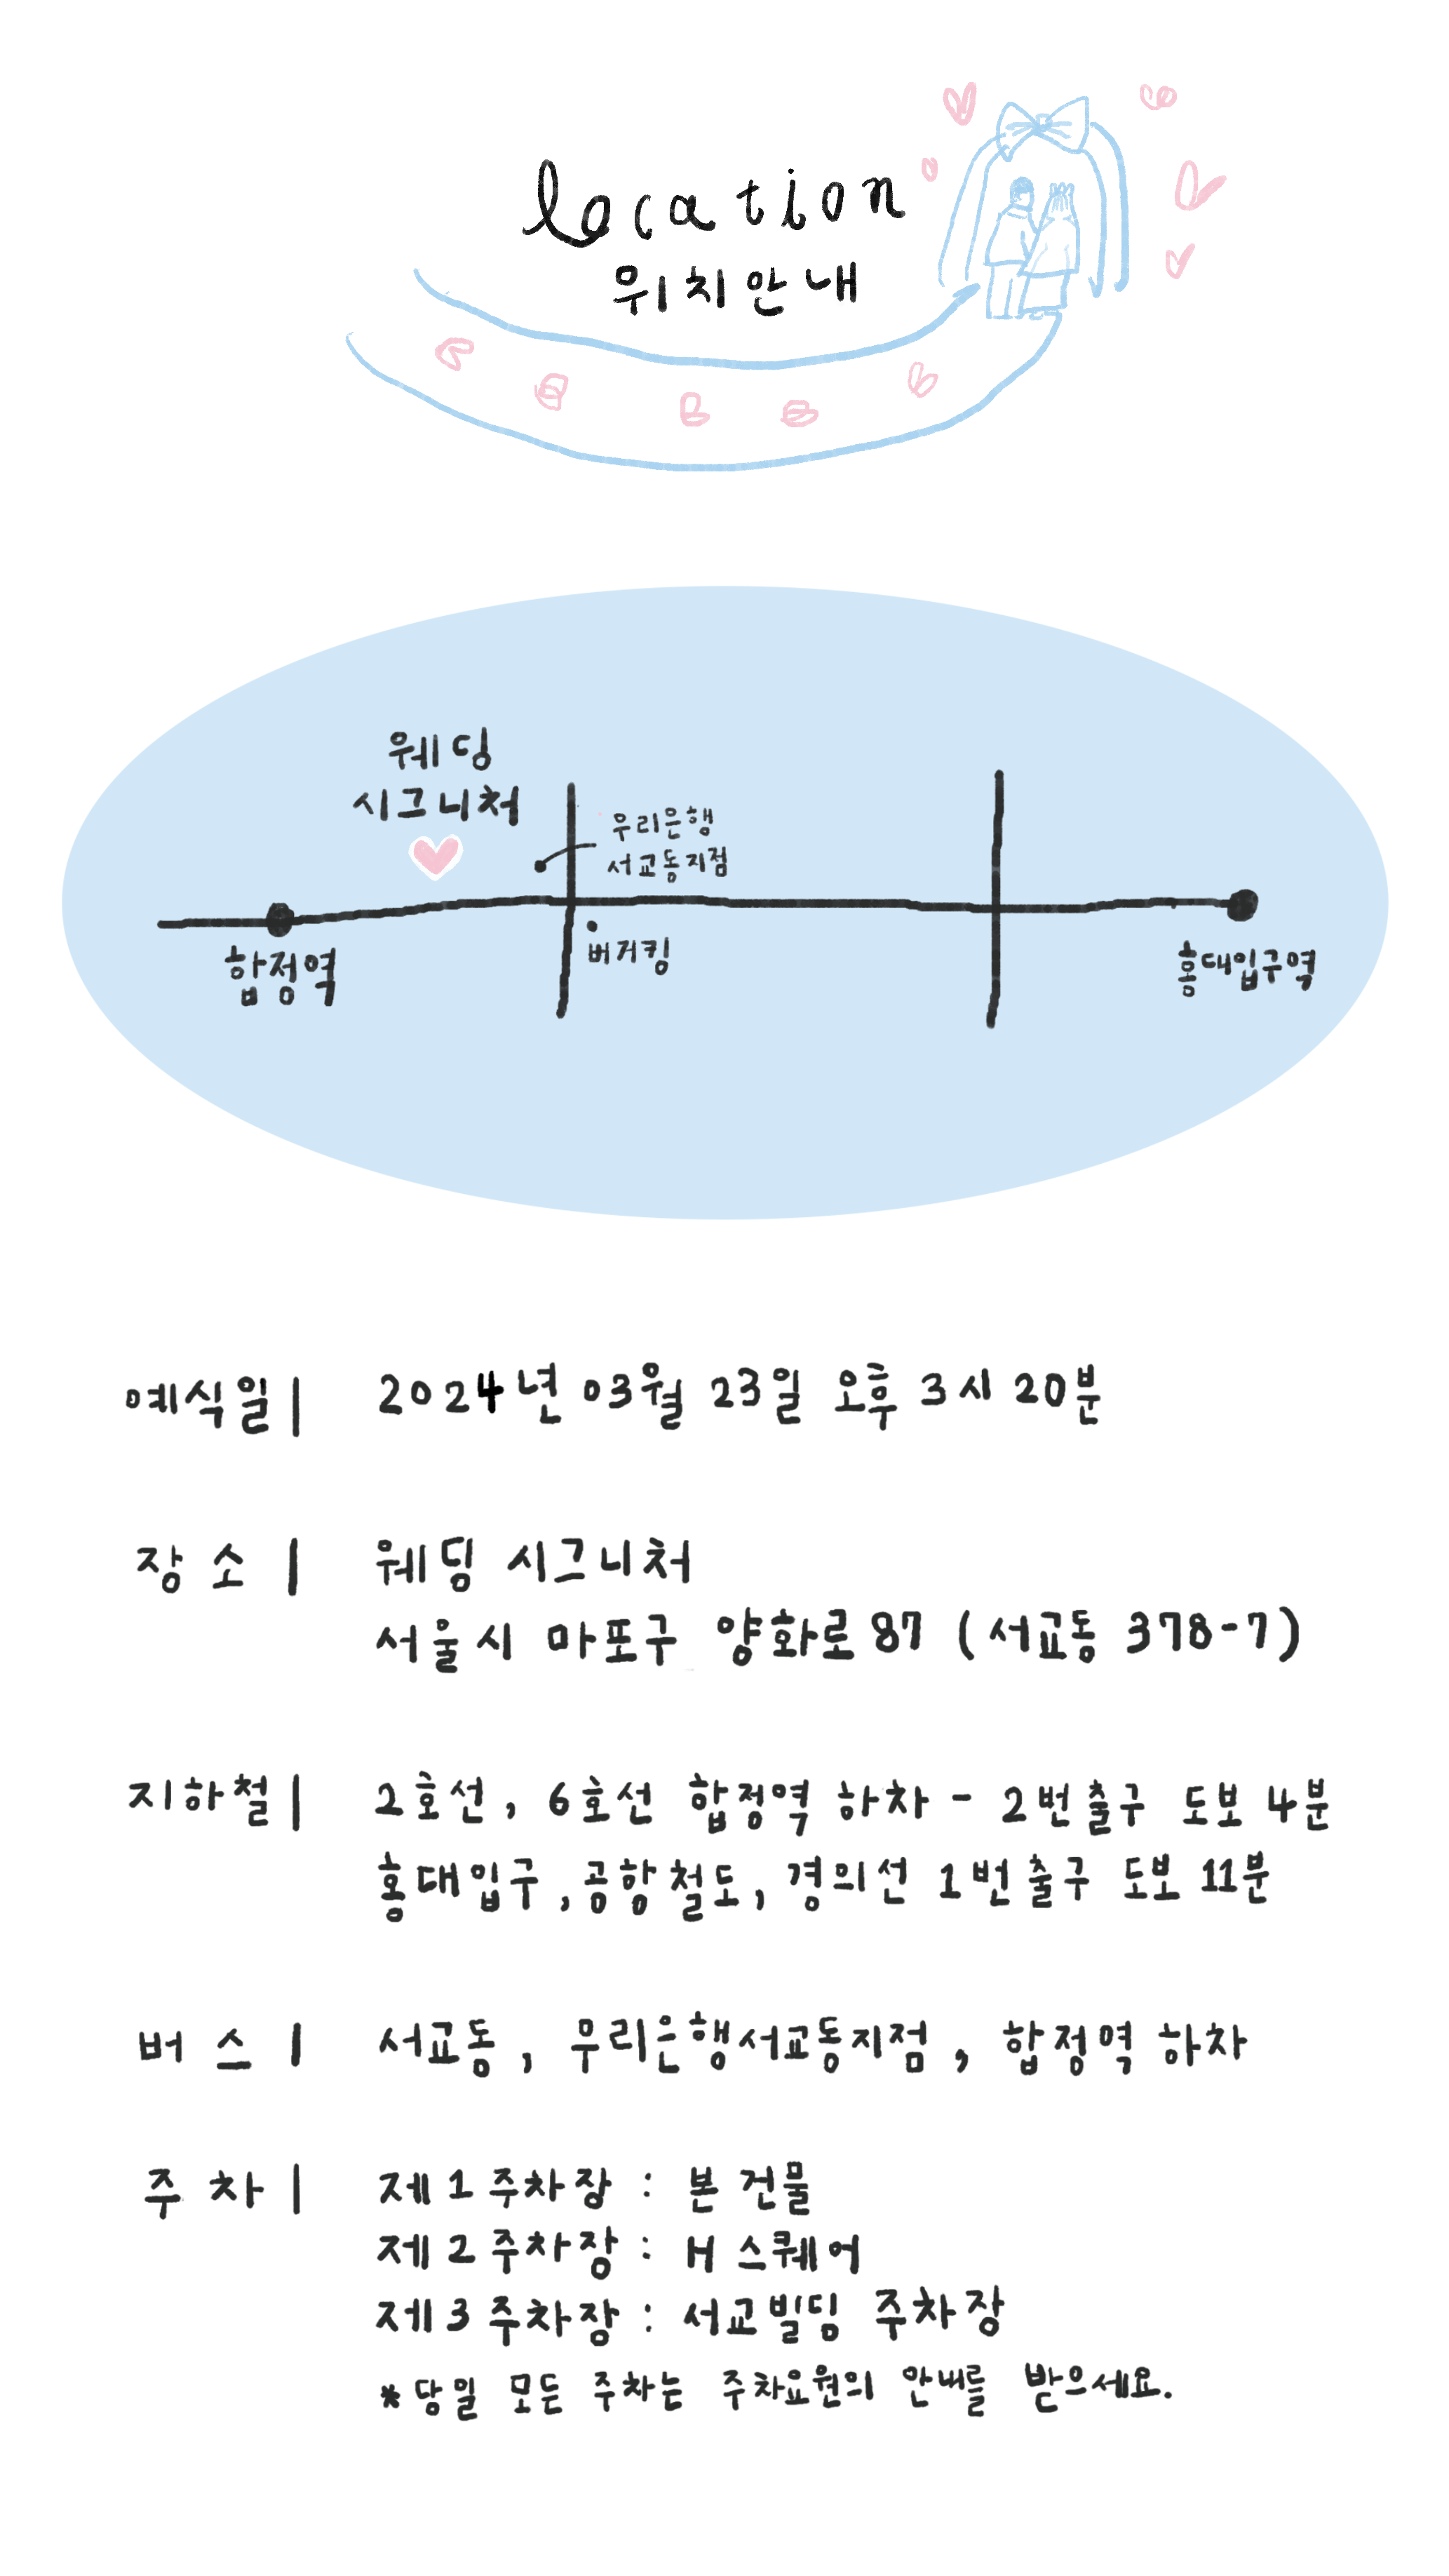 location
위치안내
웨딩
시그니처
우리은행
서교동지점
합정역
버거킹
홍대입구역
예식일| 2024년 03월 23일 오후 3시 20분
장소| 웨딩 시그니처
서울시 마포구 양화로 87 (서교동 378-7)
지하철| 2호선, 6호선 합정역 하차 - 2번출구 도보 4분
홍대입구, 공항철도, 경의선 1번출구 도보 11분
버스| 서교동, 우리은행서교동지점, 합정역 하차
주차| 제1주차장 : 본 건물
제2주차장 : H 스퀘어
제3주차장 : 서교빌딩 주차장
*당일 모든 주차는 주차요원의 안내를 받으세요.